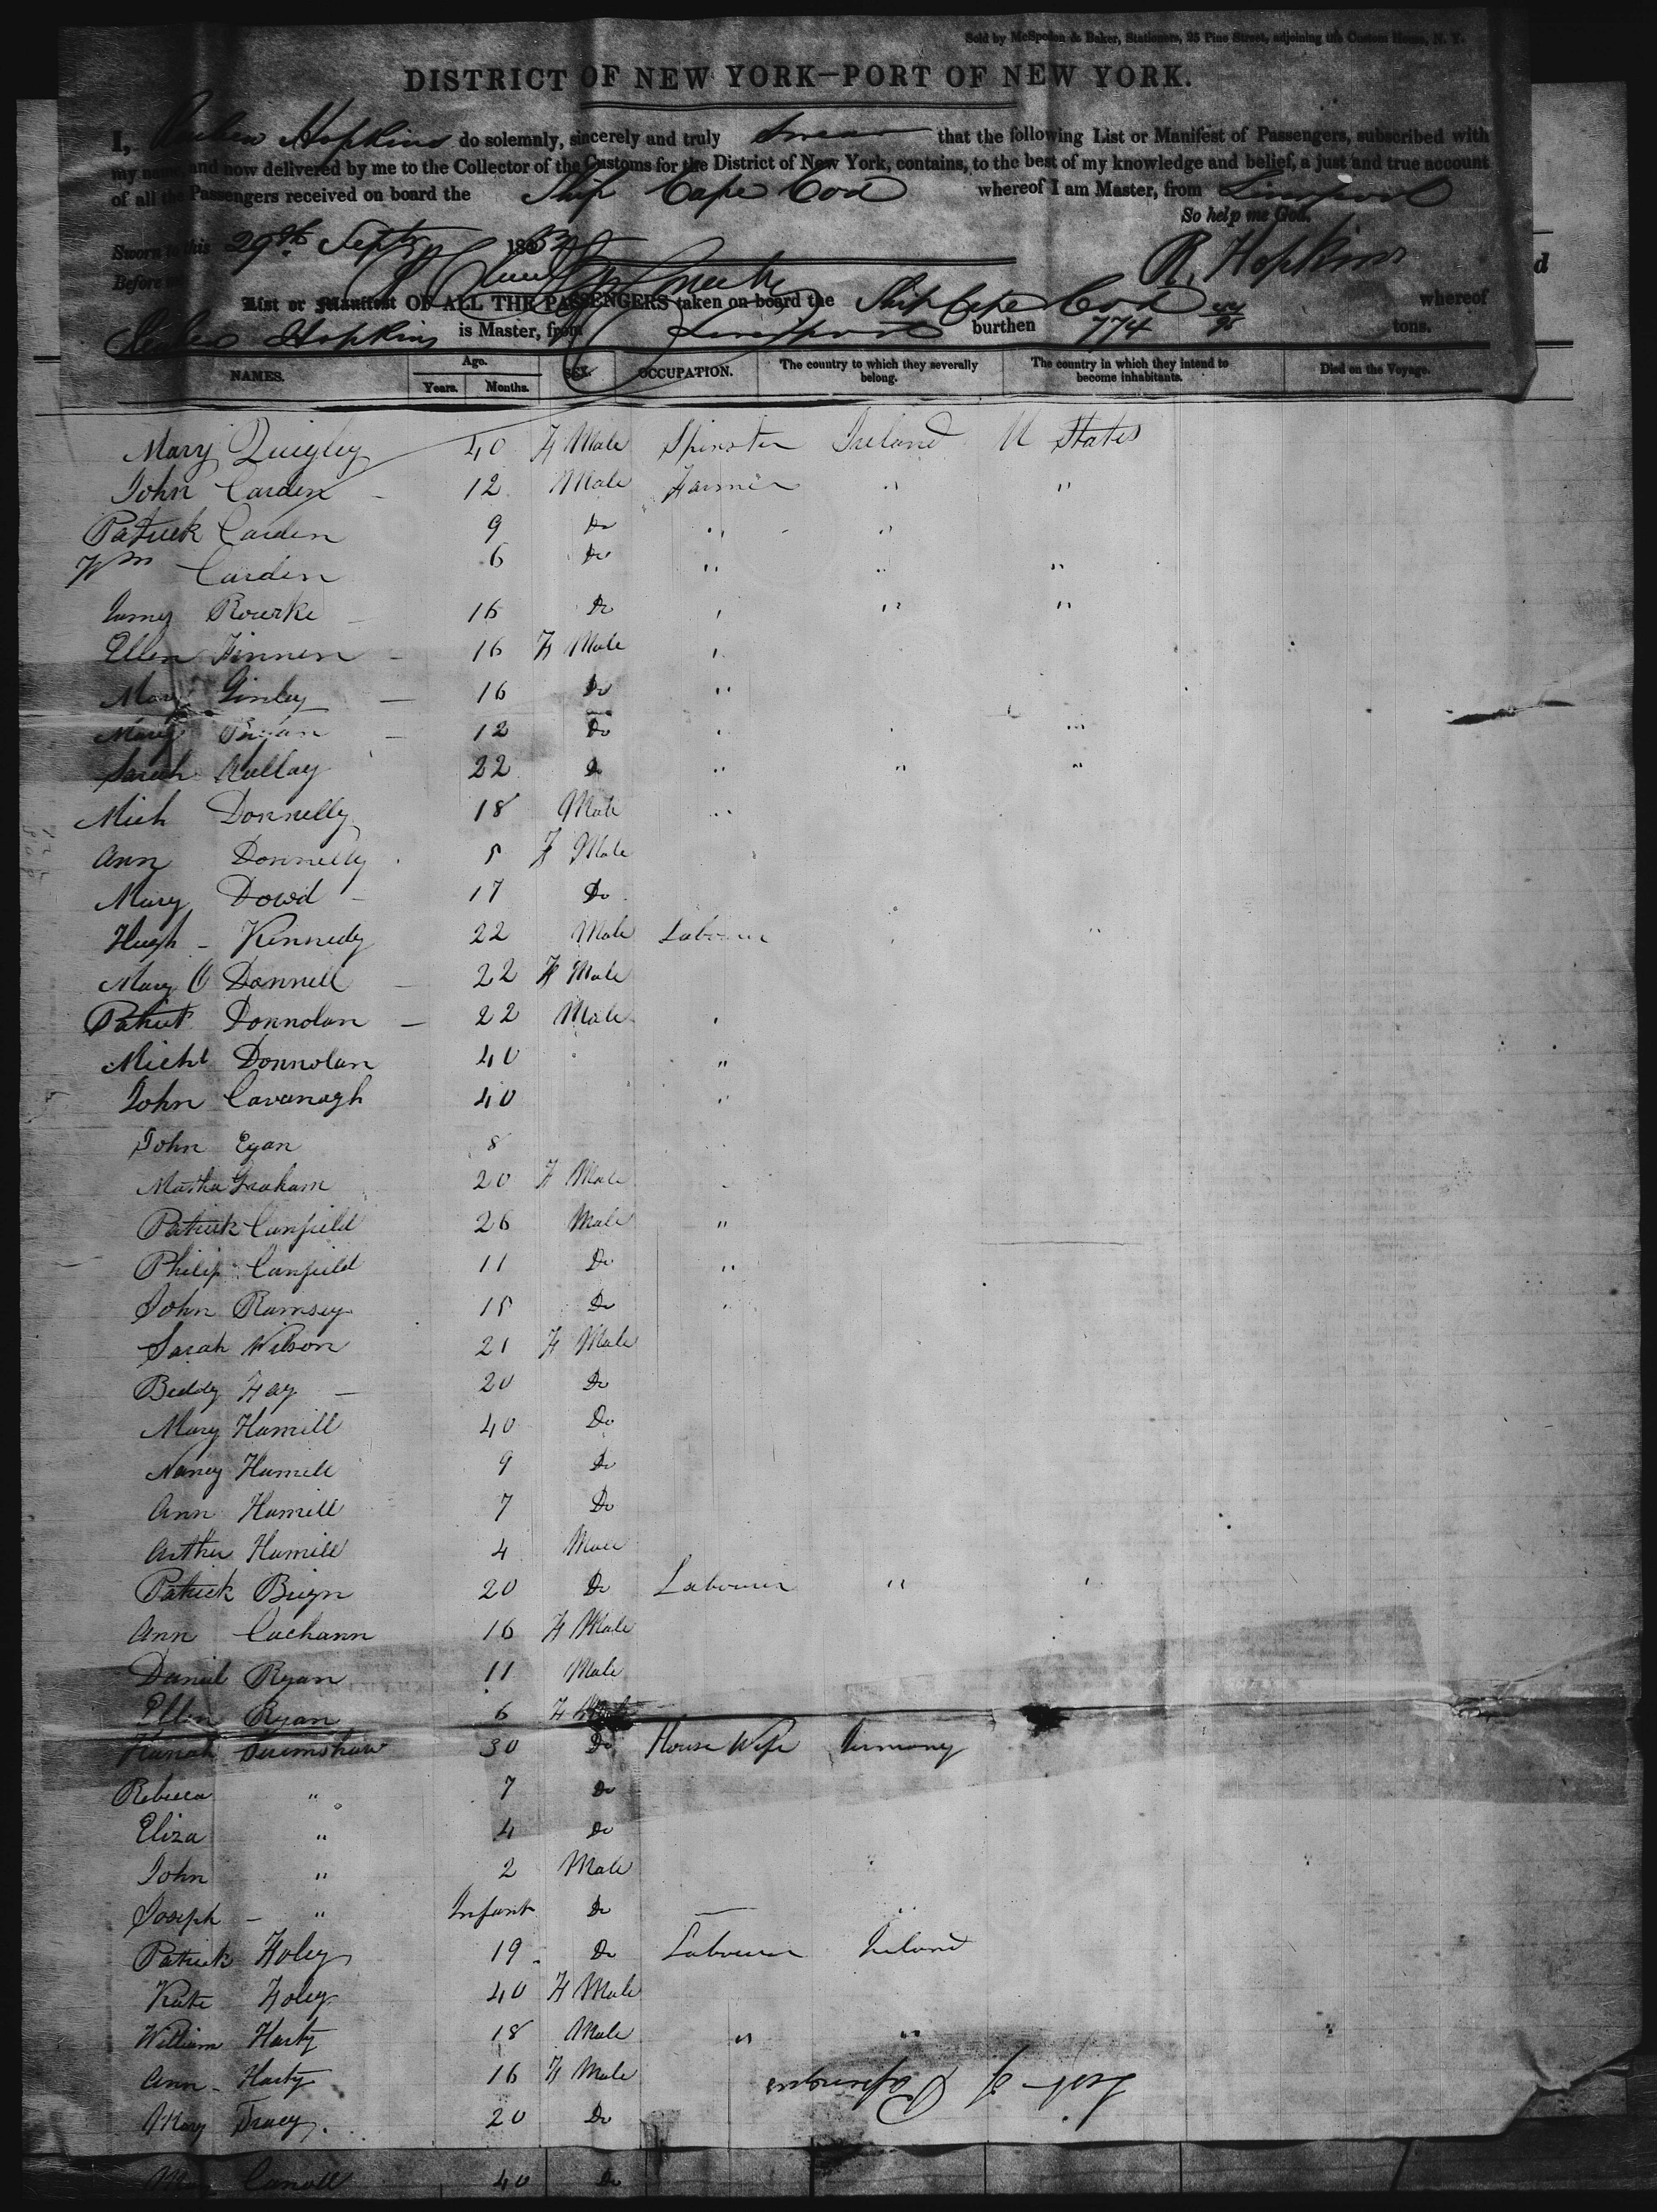 Sold by McSpedon & Baker, Stationers, 25 Pine Street, adjoining the Custom House, N. Y.
DISTRICT OF NEW YORK—PORT OF NEW YORK.
I, Reuben Hopkins do solemnly, sincerely and truly Swear that the following List or Manifest of Passengers, subscribed with
my name, and now delivered by me to the Collector of the Customs for the District of New York, contains, to the best of my knowledge and belief, a just and true account
of all the Passengers received on board the Ship Cape Cod whereof I am Master, from Liverpool
So help me God.
Sworn to this 29th Septr 185
R. Hopkins
Before me
List or Manifest OF ALL THE PASSENGERS taken on board the Ship Cape Cod whereof
Reuben Hopkins is Master, from Liverpool burthen 774 tons.
NAMES. Age. Years. Months. SEX. OCCUPATION. The country to which they severally belong. The country in which they intend to become inhabitants. Died on the Voyage.
Mary Quigley 40 F Male Spinster Ireland U States
John Carden 12 Male Farmer " "
Patrick Carden 9 Do " "
Wm Carden 6 Do " " "
James Rourke 16 Do " " "
Ellen Finnen 16 F Male "
Mary Ginley 16 Do "
Mary Bryan 12 Do " "
Sarah 22 Do " " "
Mich Donnelly 18 Male "
Ann Donnelly 5 F Male
Mary Dowd 17 Do
Hugh Kennedy 22 Male Labourer "
Mary O Donnell 22 F Male
Patrick Donnolan 22 Male "
Michl Donnolan 40 "
John Cavanagh 40 "
John Egan 8
Martha Graham 20 F Male
Patrick Canfield 26 Male "
Philip Canfield 11 Do "
John Ramsey 15 Do "
Sarah Wilson 21 F Male
Biddy Fay 20 Do
Mary Hamill 40 Do
Nancy Hamill 9 Do
Ann Hamill 7 Do
Arthur Hamill 4 Male
Patrick 20 Do Labourer " "
Ann 16 F Male
Daniel Ryan 11 Male
Ellen Ryan 6 F Male
Hanah 30 Do House Wife Germany
Rebecca " 7 Do
Eliza " 4 Do
John " 2 Male
Joseph " Infant Do — "
Patrick Foley 19 Do Labourer Ireland
Kate Foley 40 F Male
William Harty 18 Male " "
Ann Harty 16 F Male
Mary Tracy 20 Do
List of Passengers
Mary Carroll 40 Do